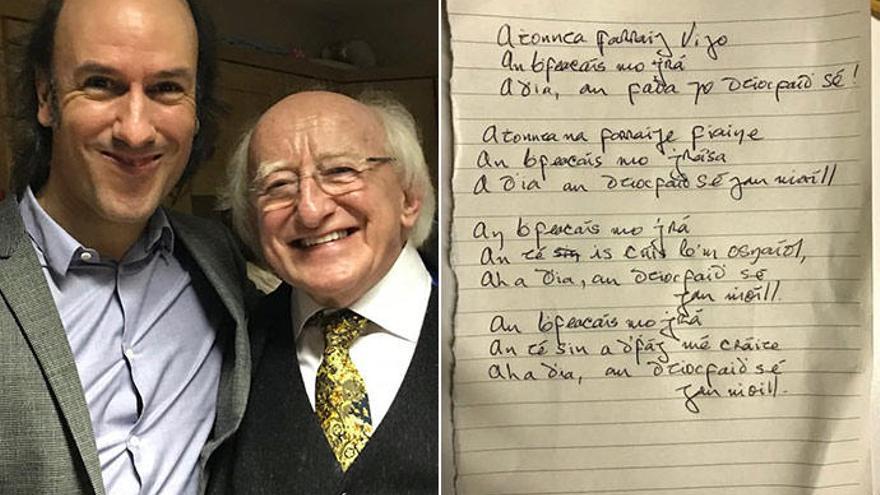 A tonnta farraig Vigo
An bfeacaís mo grá
A dia, an fada go dtiocfaid sé!
A tonnta na farraige fiaine
An bfeacaís mo grása
A Dia an dtiocfaid sé gan moill
An bfeacaís mo grá
An té sin is cúis lo'm osnaíol,
Aha Dia, an dtiocfaid sé
gan moill.
An bfeacaís mo grá
An té sin a d'fág mé cráite
Aha Dia, an dtiocfaid sé
gan moill.